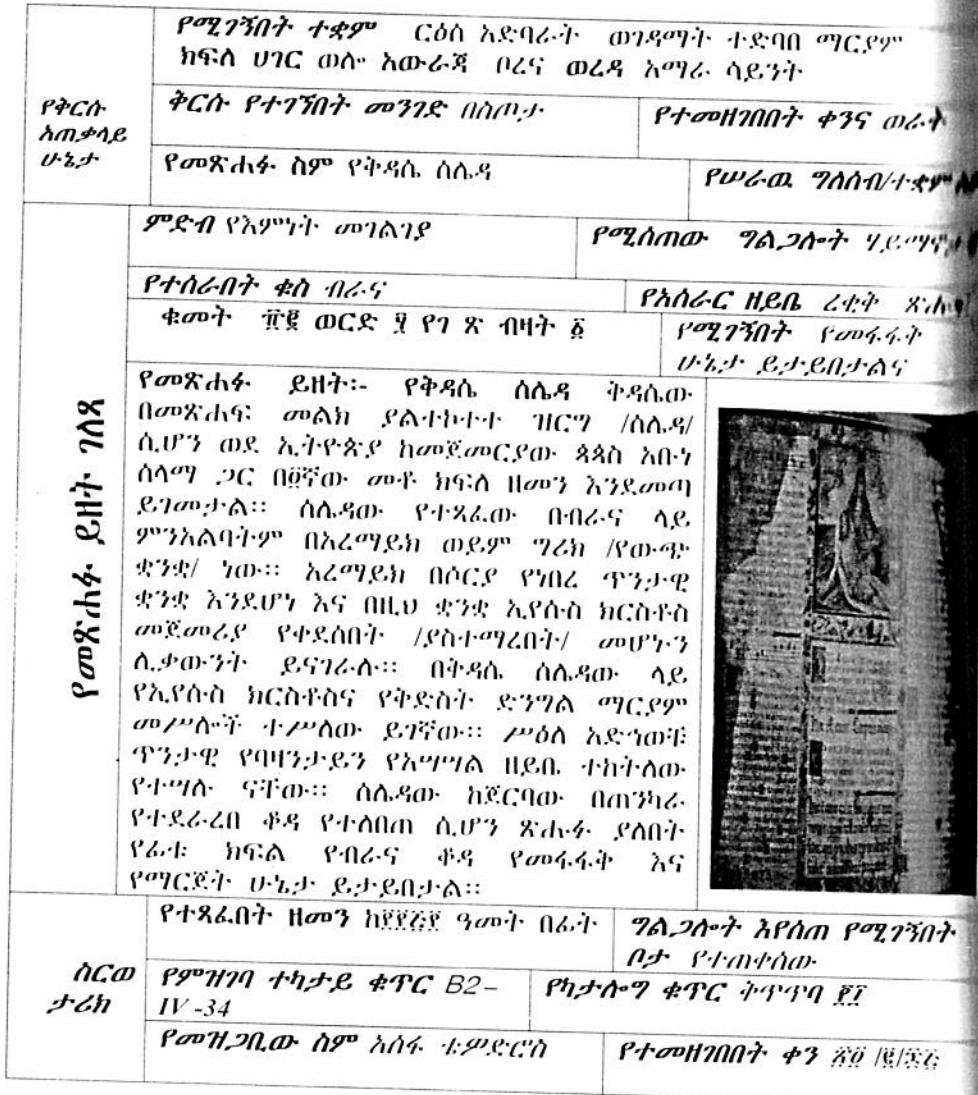 የሚገኝበት ተቋም ርዕሰ አድባራት ወገዳማት ተድባበ ማርያም
ክፍለ ሀገር ወሎ አውራጃ ቦረና ወረዳ አማራ ሳይንት
የቅርሱ
አጠቃላይ
ሁኔታ
ቅርሱ የተገኘበት መንገድ በስጦታ
የተመዘገበበት ቀንና ወራት
የመጽሐፉ ስም የቅዳሴ ሰሌዳ
የሠራዉ ግለሰብ/ተቋም
ምድብ የእምነት መገልገያ
የሚሰጠው ግልጋሎት
የተሰራበት ቁስ ብራና
የአሰራር ዘይቤ ረቂቅ
ቁመት ወርድ ፶ የገ ጽ ብዛት ፩
የሚገኝበት የመፋፋቅ
ሁኔታ ይታይበታልና
የመጽሐፉ ይዘት ገለጻ
የመጽሐፉ ይዘት፡- የቅዳሴ ሰሌዳ ቅዳሴው
በመጽሐፍ መልክ ያልተከተተ ዝርግ /ሰሌዳ/
ሲሆን ወደ ኢትዮጵያ ከመጀመርያው ጳጳስ አቡነ
ሰላማ ጋር በ፬ኛው መቶ ክፍለ ዘመን እንደመጣ
ይገመታል፡፡ ሰሌዳው የተጻፈው በብራና ላይ
ምንአልባትም በአረማይክ ወይም ግሪክ /የውጭ
ቋንቋ/ ነው፡፡ አረማይክ በሶርያ የነበረ ጥንታዊ
ቋንቋ እንደሆነ እና በዚህ ቋንቋ ኢየሱስ ክርስቶስ
መጀመሪያ የቀደሰበት /ያስተማረበት/ መሆኑን
ሊቃውንት ይናገራሉ፡፡ በቅዳሴ ሰሌዳው ላይ
የኢየሱስ ክርስቶስና የቅድስት ድንግል ማርያም
መሥሎች ተሥለው ይገኛው፡፡ ሥዕለ አድኅወቹ
ጥንታዊ የባዛንታይን የአሣሣል ዘይቤ ተከትለው
የተሣሉ ናቸው፡፡ ሰሌዳው ከጀርባው በጠንካራ
የተደራረበ ቆዳ የተለበጠ ሲሆን ጽሑፉ ያለበት
የፊቱ ክፍል የብራና ቆዳ የመፋፋቅ እና
የማርጀት ሁኔታ ይታይበታል፡፡
ስርወ
ታሪክ
የተጻፈበት ዘመን ዓመት በፊት
ግልጋሎት እየሰጠ የሚገኝበት
ቦታ የተጠቀሰው
የምዝገባ ተካታይ ቁጥር B2–
IV -34
የካታሎግ ቁጥር
የመዝጋቢው ስም አሰፋ ቴዎድሮስ
የተመዘገበበት ቀን